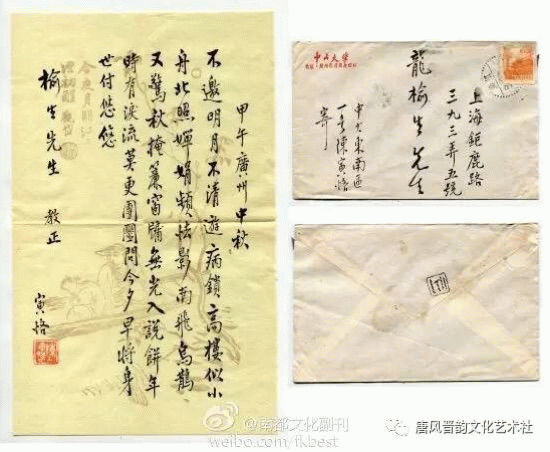 甲午廣州中秋
不邀明月不清遊病鎖高樓似小
舟北照嬋娟頻怯影南飛烏鵲
又驚秋掩簾窗牖無光入說餅年
時有淚流莫更團圓問今夕早將身
世付悠悠
榆生先生 教正
寅恪
中山大學
上海鉅鹿路
三九三弄五號
龍榆生先生
中大東南區
一号陳寅恪
寄
@南都文化副刊
weibo.com/fkbest
唐风晋韵文化艺术社